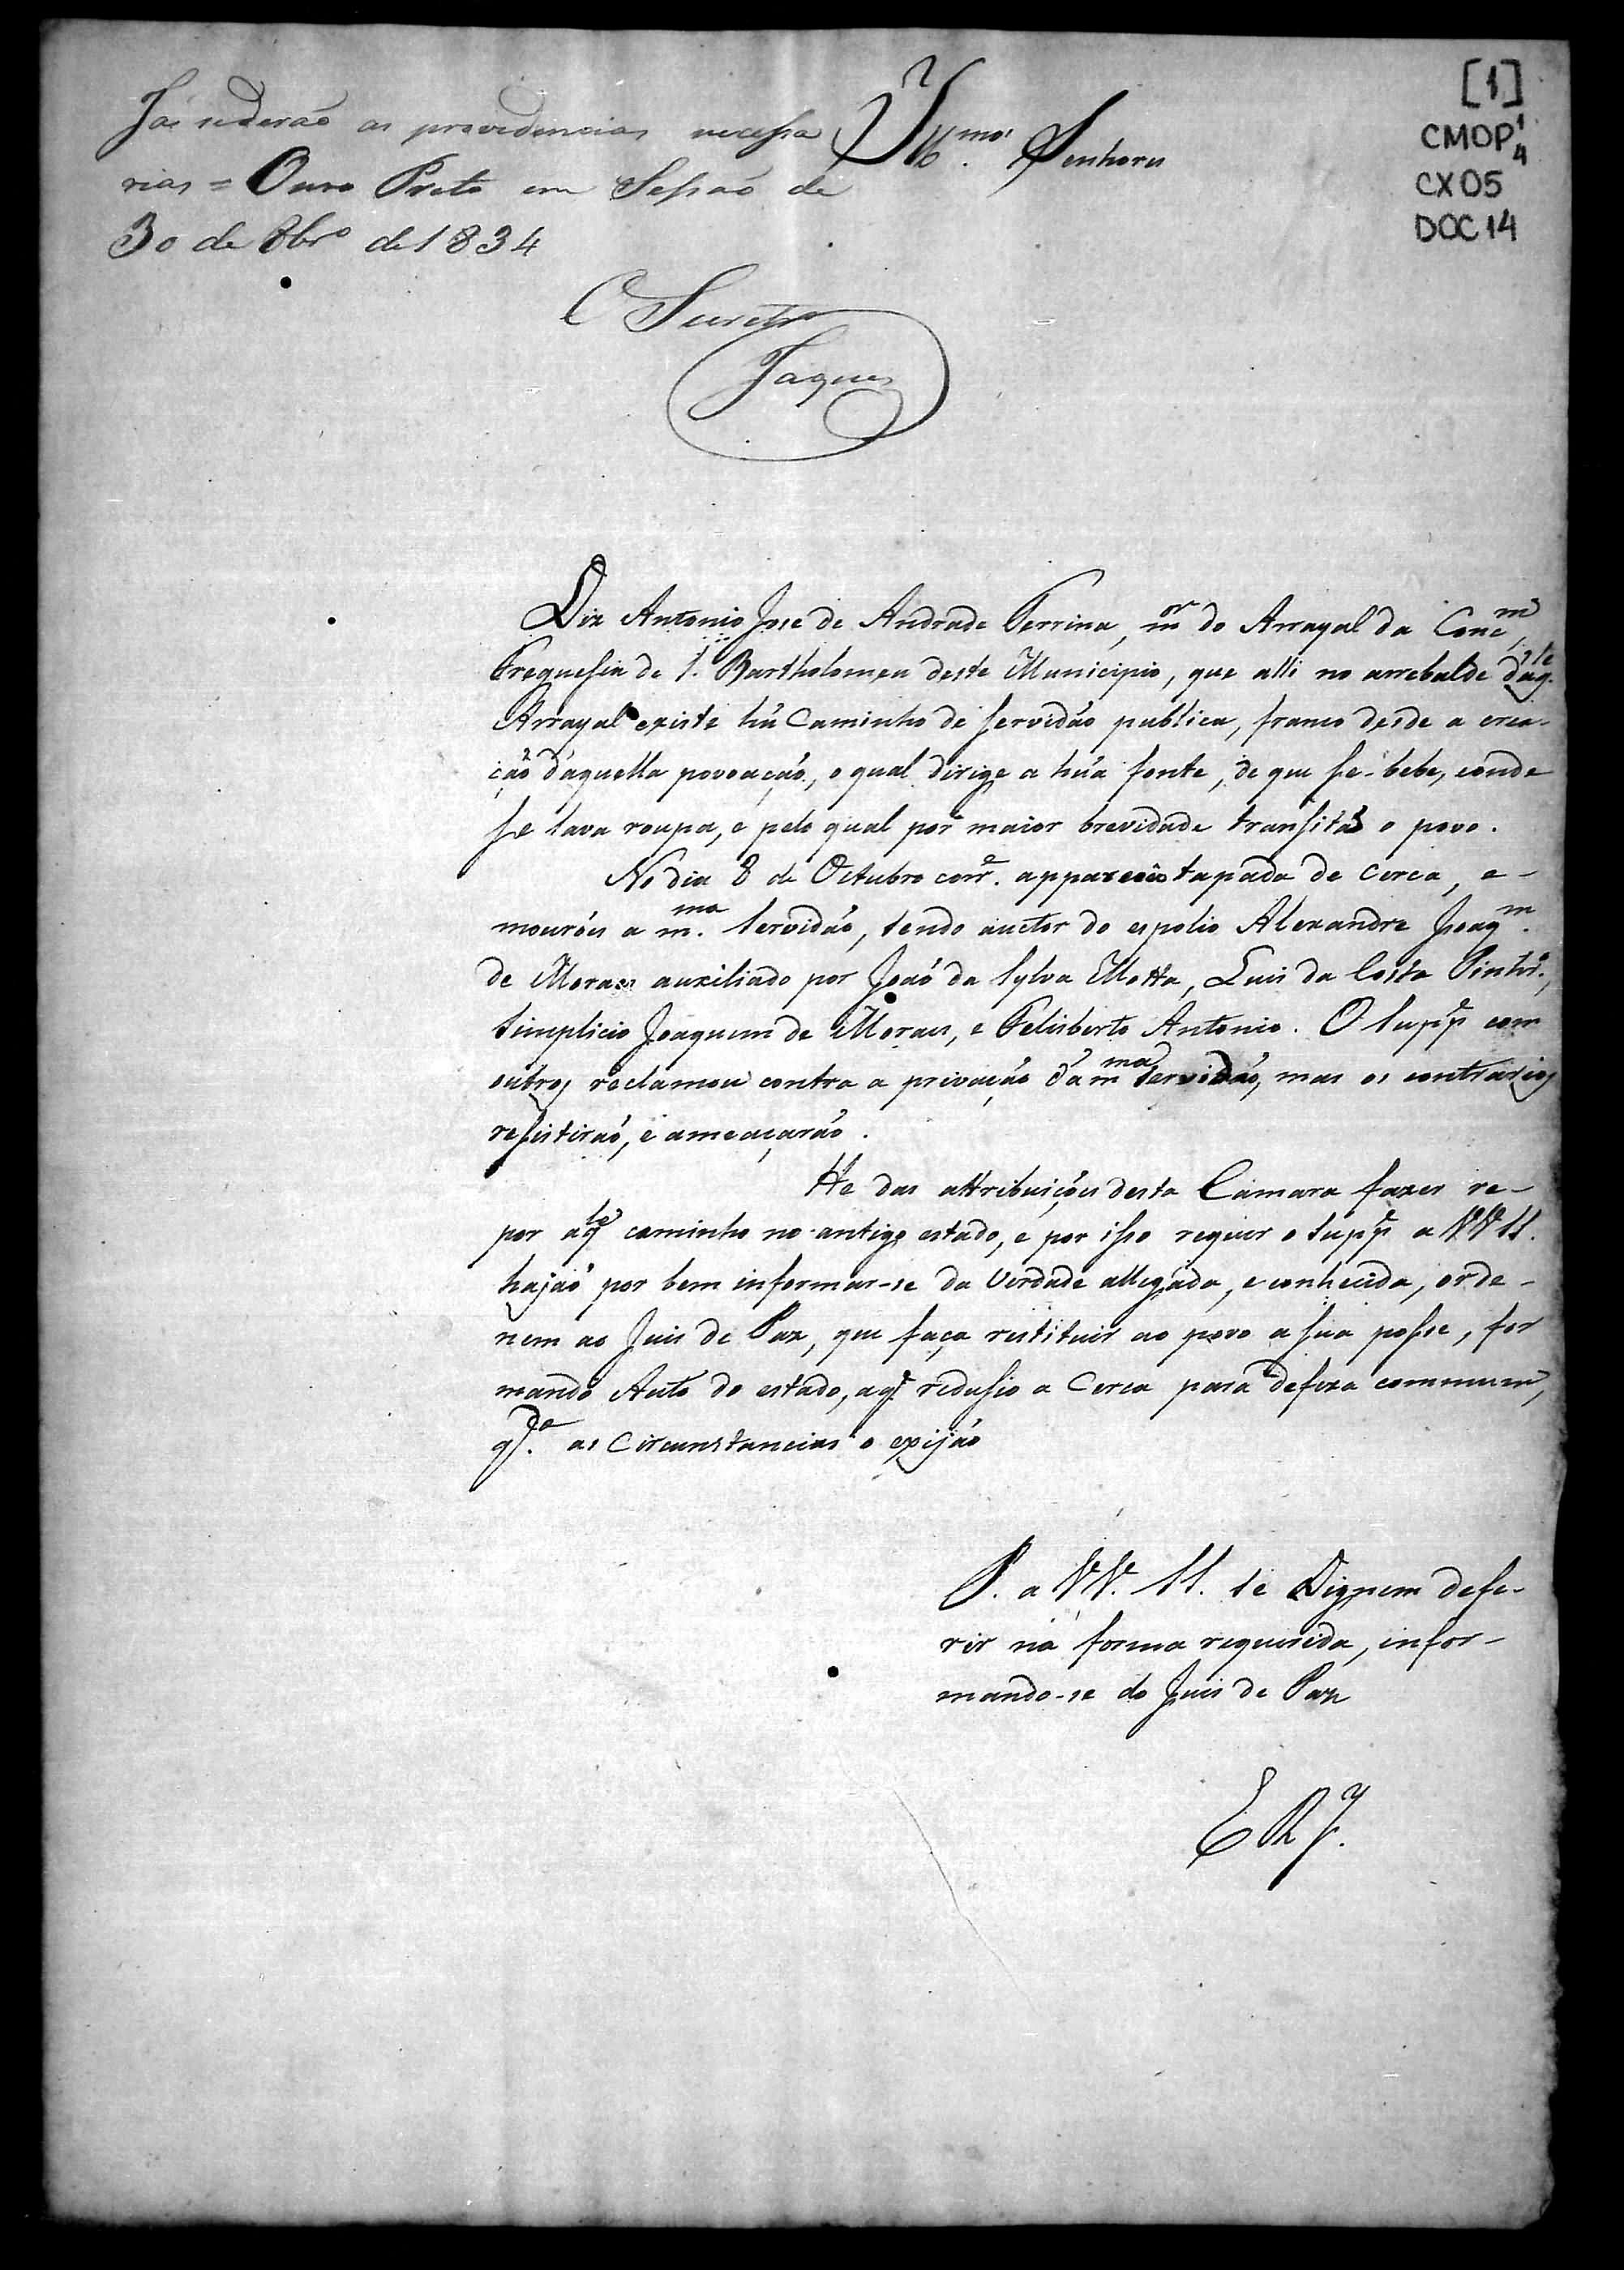 [1]
CMOP 1/4
CX 05
DOC 14
Já se derão as providencias necessa
rias = Ouro Preto em Sessão de
30 de 8bro de 1834
O Secretro
Jaques
Illmos Senhores
Diz Antonio Jose de Andrade Ferrina, mor do Arrayal da Concm,
Freguesia de S. Bartholomeu deste Municipio, que alli no arrebalde d'aqle
Arrayal existe hũ Caminho de servidão publica, franco desde a crea-
ção d'aquella povoação, o qual dirige a hũa fonte, de que se-bebe, e onde
se lava roupa, e pelo qual por maior brevidade transita o povo.
No dia 8 de Octubro corre. appareceo tapada de cerca, e-
mourões a mma. servidão, sendo auctor do espolio Alexandre Joaqm.
de Moraes auxiliado por João da Sylva Motta, Luis da Costa
Simplicio Joaquim de Moraes, e Felisberto Antonio. O Suppe com
outros reclamou contra a privação da mma servidão, mas os contrarios
resistirão, e ameaçarão.
He das attribuições desta Camara fazer re-
por aqle caminho no antigo estado, e por isso requer o Suppe a VV SS.
hajão por bem informar-se da verdade allegada, e conhecida, orde-
nem ao Juis de Paz, que faça restituir ao povo a sua posse, for
mando Auto do estado, a q. redusio a Cerca para defeza commum,
qdo. as circunstancias o exijão
P. a VV. SS. se Dignem defe-
rir na forma requerida, infor-
mando-se do Juis de Paz
E R Me.